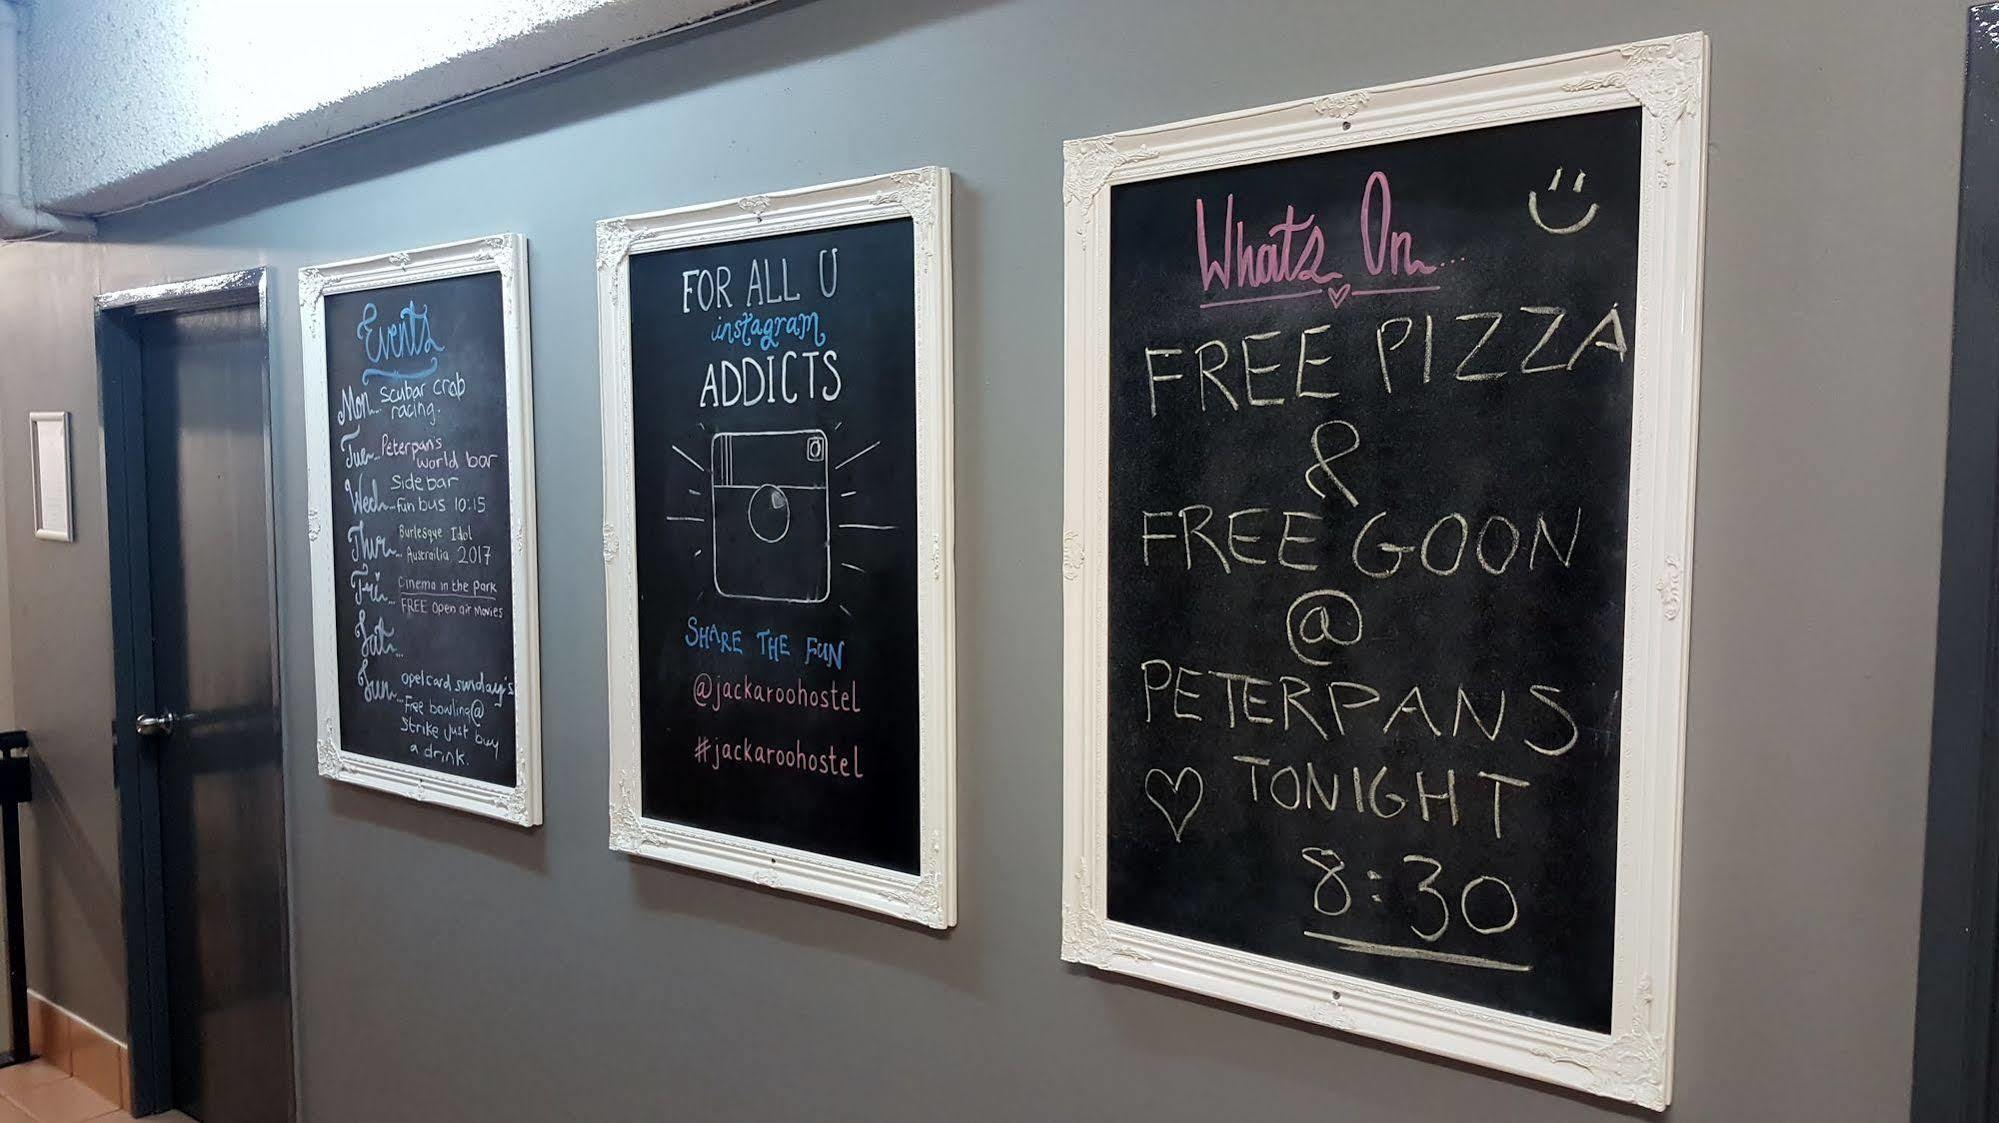 Events
Mon... Scubar crab
racing.
Tue... Peterpan's
world bar
Wed... Side bar
Fun bus 10:15
Thur... Burlesque Idol
Austrailia 2017
Fri... Cinema in the park
FREE Open air Movies
Sat...
Sun... opelcard sunday's
Free bowling@
Strike just buy
a drink.
FOR ALL U
instagram
ADDICTS
SHARE THE FUN
@jackaroohostel
#jackaroohostel
Whats On...
FREE PIZZA
&
FREE GOON
@
PETERPANS
TONIGHT
8:30